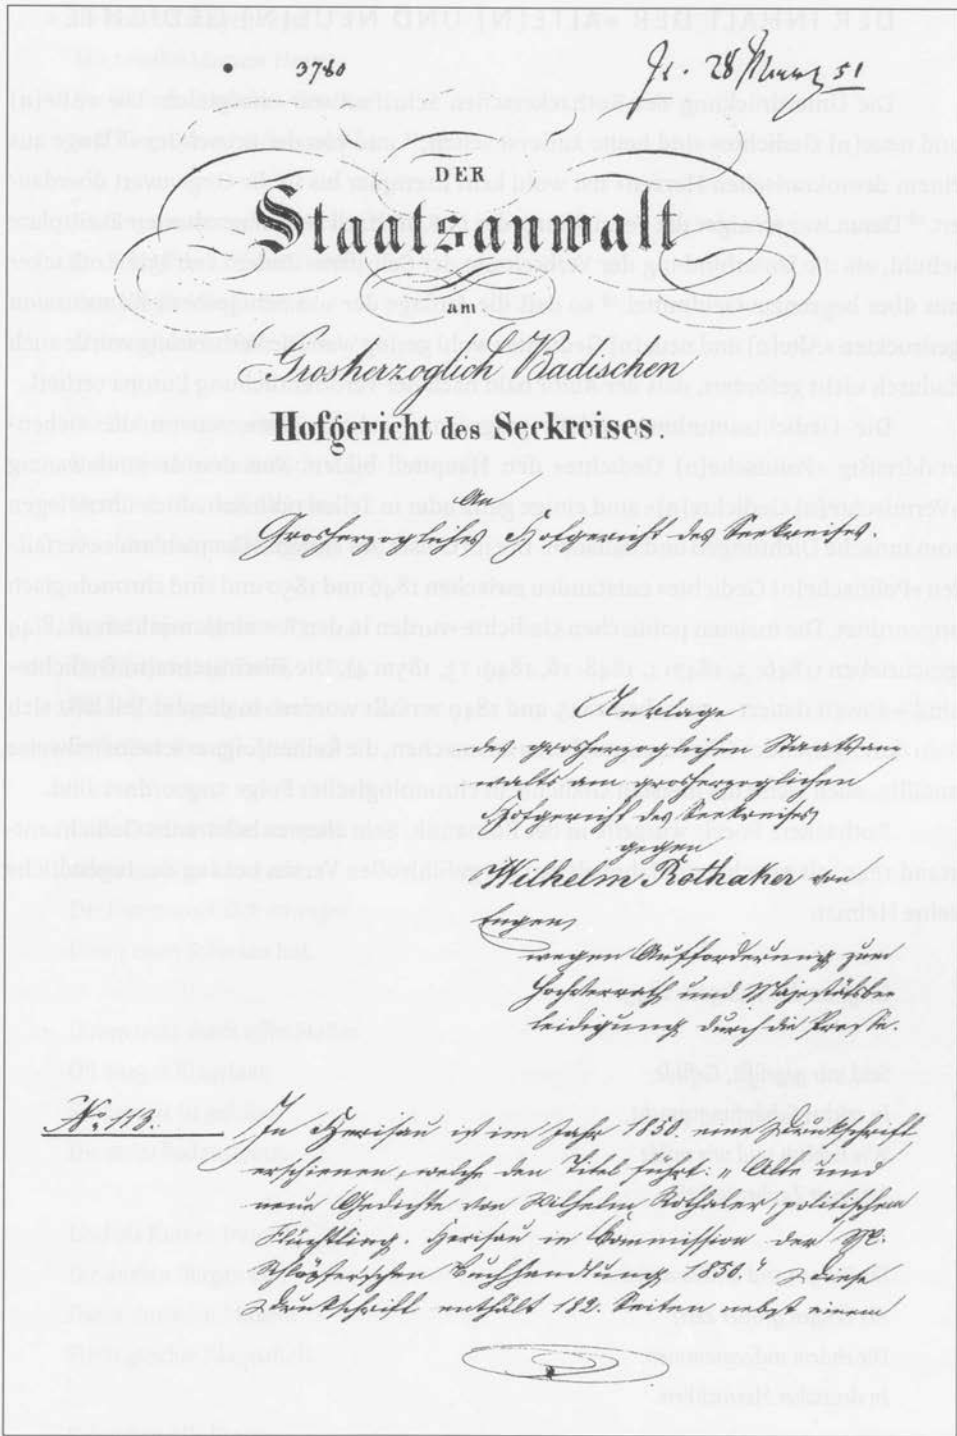 3780
28 März 51
DER
Staatsanwalt
am
Grosherzoglich Badischen
Hofgericht des Seekreises.
An
Grosherzogliches Hofgericht des Seekreises.
Anklage
des grosherzoglichen Staatsan
walts am grosherzoglichen
Hofgericht des Seekreises
gegen
Wilhelm Rothaker von
Engen,
wegen Aufforderung zum
Hochverrath und Majestätsbe
leidigung durch die Presse.
No. 113.
In Herisau ist im Jahr 1850. eine Drukschrift
erschienen, welche den Titel führt: „Alte und
neue Gedichte von Wilhelm Rothaker, politischem
Flüchtling. Herisau in Commission der M.
Schläpfer'schen Buchhandlung 1850." Diese
Drukschrift enthält 182. Seiten nebst einem